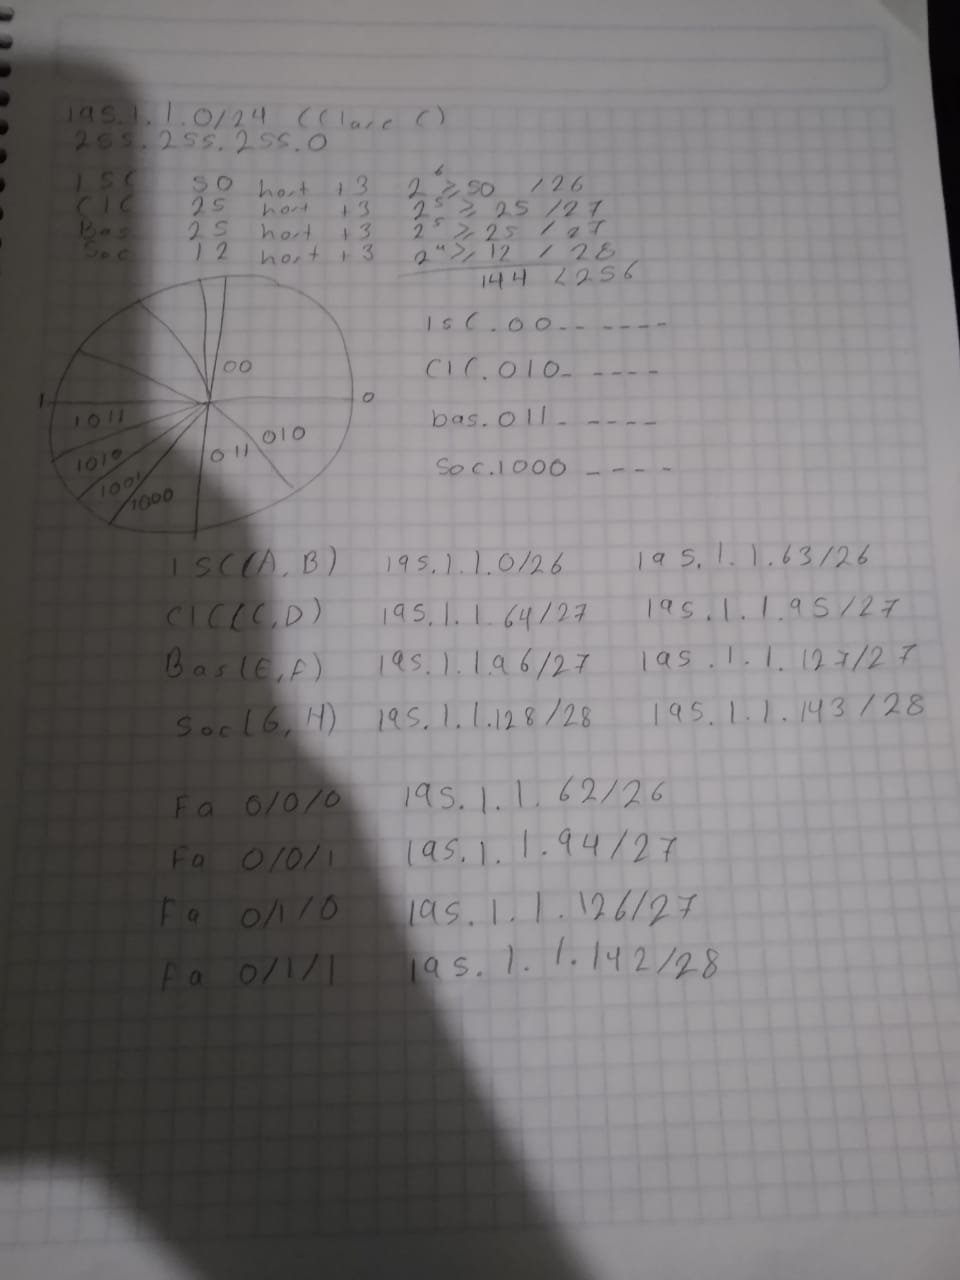 195.1.1.0/24 (Clase C)
255.255.255.0
ISC 50 host +3 2^6 ≥ 50 /26
CIC 25 host +3 2^5 ≥ 25 /27
Bas 25 host +3 2^5 ≥ 25 /27
Soc 12 host +3 2^4 ≥ 12 /28
144 < 256
ISC.00------
CIC.010-----
bas.011-----
Soc.1000----
00
1
0
1011
010
011
1010
1001
1000
ISC(A,B) 195.1.1.0/26 195.1.1.63/26
CIC(C,D) 195.1.1.64/27 195.1.1.95/27
Bas(E,F) 195.1.1.96/27 195.1.1.127/27
Soc(G,H) 195.1.1.128/28 195.1.1.143/28
Fa 0/0/0 195.1.1.62/26
Fa 0/0/1 195.1.1.94/27
Fa 0/1/0 195.1.1.126/27
Fa 0/1/1 195.1.1.142/28